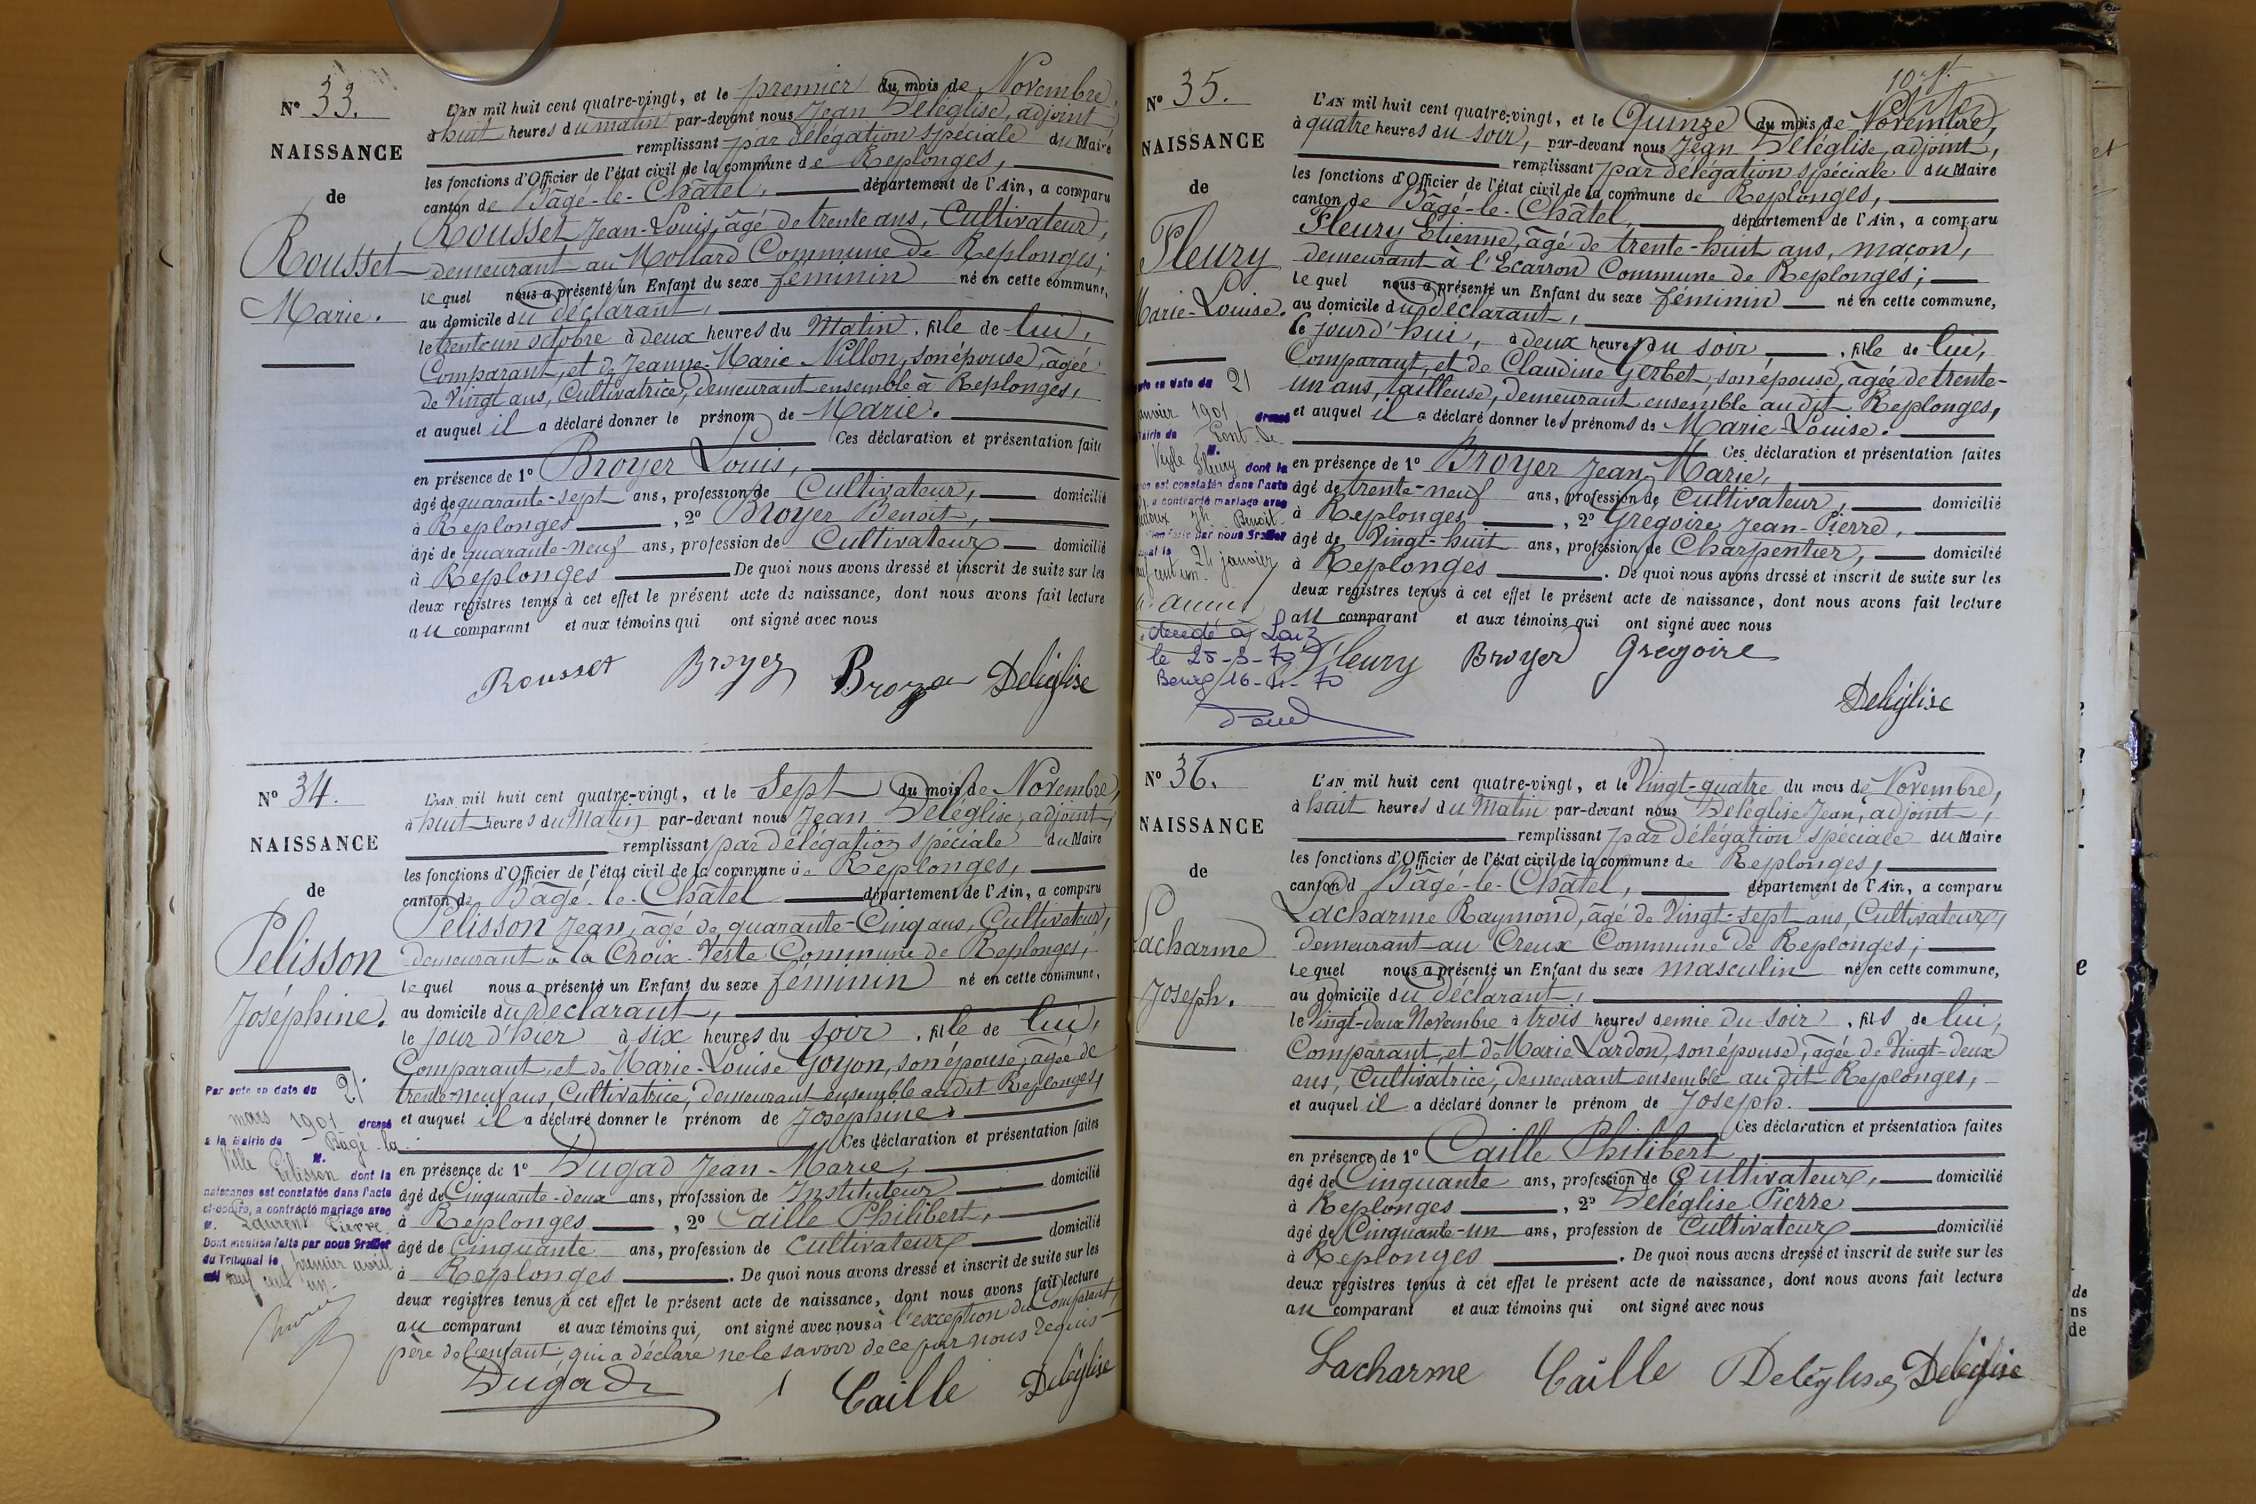 N° 33.
NAISSANCE
de
Rousset
Marie.
L'AN mil huit cent quatre-vingt, et le premier du mois de Novembre,
à huit heures du matin par-devant nous Jean Deléglise, adjoint
remplissant par délégation spéciale du Maire
les fonctions d'Officier de l'état civil de la commune de Replonges,
canton de Bâgé-le-Châtel, département de l'Ain, a comparu
Rousset Jean-Louis, âgé de trente ans, Cultivateur,
demeurant au Mollard Commune de Replonges;
le quel nous a présenté un Enfant du sexe féminin né en cette commune,
au domicile du déclarant,
le trente un octobre à deux heures du Matin, fille de lui,
Comparant, et de Jeanne-Marie Villon, son épouse, âgée
de Vingt ans, Cultivatrice, demeurant ensemble à Replonges,
et auquel il a déclaré donner le prénom de Marie.
Ces déclaration et présentation faite
en présence de 1° Broyer Louis,
âgé de quarante-sept ans, profession de Cultivateur, domicilié
à Replonges, 2° Broyer Benoit,
âgé de quarante-neuf ans, profession de Cultivateur domicilié
à Replonges De quoi nous avons dressé et inscrit de suite sur les
deux registres tenus à cet effet le présent acte de naissance, dont nous avons fait lecture
au comparant et aux témoins qui ont signé avec nous
Rousset Broyer Broyer Deléglise
N° 34.
NAISSANCE
de
Pélisson
Joséphine.
Par acte en date du 21
mars 1901 dressé
à la Mairie de Bagé-la-
Ville M.
Pélisson dont la
naissance est constatée dans l'acte
ci-contre, a contracté mariage avec
M. Laurent Pierre
Dont mention faite par nous Greffier
du Tribunal le premier avril
mil neuf cent un.
L'AN mil huit cent quatre-vingt, et le Sept du mois de Novembre,
à huit heures du Matin par-devant nous Jean Deléglise, adjoint,
remplissant par délégation spéciale du Maire
les fonctions d'Officier de l'état civil de la commune de Replonges,
canton de Bâgé-le-Châtel département de l'Ain, a comparu
Pélisson Jean, âgé de quarante-Cinq ans, Cultivateur,
demeurant à la Croix-Verte Commune de Replonges,
le quel nous a présenté un Enfant du sexe féminin né en cette commune,
au domicile du déclarant,
le jour d'hier à six heures du soir, fille de lui,
Comparant, et de Marie-Louise Goyon, son épouse, âgée de
trente-neuf ans, Cultivatrice, demeurant ensemble au dit Replonges,
et auquel il a déclaré donner le prénom de Joséphine.
Ces déclaration et présentation faites
en présence de 1° Dugad Jean-Marie,
âgé de Cinquante-deux ans, profession de Instituteur domicilié
à Replonges, 2° Caille Philibert,
âgé de Cinquante ans, profession de Cultivateur domicilié
à Replonges. De quoi nous avons dressé et inscrit de suite sur les
deux registres tenus à cet effet le présent acte de naissance, dont nous avons fait lecture
au comparant et aux témoins qui, ont signé avec nous à l'exception du Comparant,
père de l'enfant qui a déclaré ne le savoir de ce par nous requis
Dugad Caille Deléglise
N° 35.
NAISSANCE
de
Fleury
Marie-Louise.
acte en date du 21
janvier 1901 dressé
Mairie de Pont-de-
Veyle M.
Fleury dont la
est constatée dans l'acte
a contracté mariage avec
Jh Benoit
faite par nous Greffier
le 24 janvier
cent un.
décédé à Laiz
Bourg 16-4-70
L'AN mil huit cent quatre-vingt, et le Quinze du mois de Novembre,
à quatre heures du soir, par-devant nous Jean Deléglise, adjoint,
remplissant par délégation spéciale du Maire
les fonctions d'Officier de l'état civil de la commune de Replonges,
canton de Bâgé-le-Châtel, département de l'Ain, a comparu
Fleury Etienne, âgé de trente-huit ans, maçon,
demeurant à l'Ecarron Commune de Replonges;
le quel nous a présenté un Enfant du sexe féminin né en cette commune,
au domicile du déclarant,
le jourd'hui, à deux heures du soir, fille de lui,
Comparant, et de Claudine Gerbet, son épouse, âgée de trente-
un ans, tailleuse, demeurant ensemble au dit Replonges,
et auquel il a déclaré donner les prénoms de Marie-Louise.
Ces déclaration et présentation faites
en présence de 1° Broyer Jean-Marie,
âgé de trente-neuf ans, profession de Cultivateur, domicilié
à Replonges, 2° Grégoire Jean-Pierre,
âgé de Vingt-huit ans, profession de Charpentier, domicilié
à Replonges. De quoi nous avons dressé et inscrit de suite sur les
deux registres tenus à cet effet le présent acte de naissance, dont nous avons fait lecture
au comparant et aux témoins qui ont signé avec nous
Fleury Broyer Gregoire
Deléglise
N° 36.
NAISSANCE
de
Lacharme
Joseph.
L'AN mil huit cent quatre-vingt, et le Vingt-quatre du mois de Novembre,
à huit heures du Matin par-devant nous Deléglise Jean, adjoint,
remplissant par délégation spéciale du Maire
les fonctions d'Officier de l'état civil de la commune de Replonges,
canton d Bâgé-le-Châtel, département de l'Ain, a comparu
Lacharme Raymond, âgé de Vingt-sept ans, Cultivateur,
demeurant au Creux Commune de Replonges;
le quel nous a présenté un Enfant du sexe masculin né en cette commune,
au domicile du déclarant,
le Vingt-deux Novembre à trois heures demie du soir, fils de lui,
Comparant, et de Marie Lardon, son épouse, âgée de Vingt-deux
ans, Cultivatrice, demeurant ensemble au dit Replonges,
et auquel il a déclaré donner le prénom de Joseph.
Ces déclaration et présentation faites
en présence de 1° Caille Philibert,
âgé de Cinquante ans, profession de Cultivateur, domicilié
à Replonges, 2° Deléglise Pierre
âgé de Cinquante-un ans, profession de Cultivateur domicilié
à Replonges. De quoi nous avons dressé et inscrit de suite sur les
deux registres tenus à cet effet le présent acte de naissance, dont nous avons fait lecture
au comparant et aux témoins qui ont signé avec nous
Lacharme Caille Deléglise Deléglise